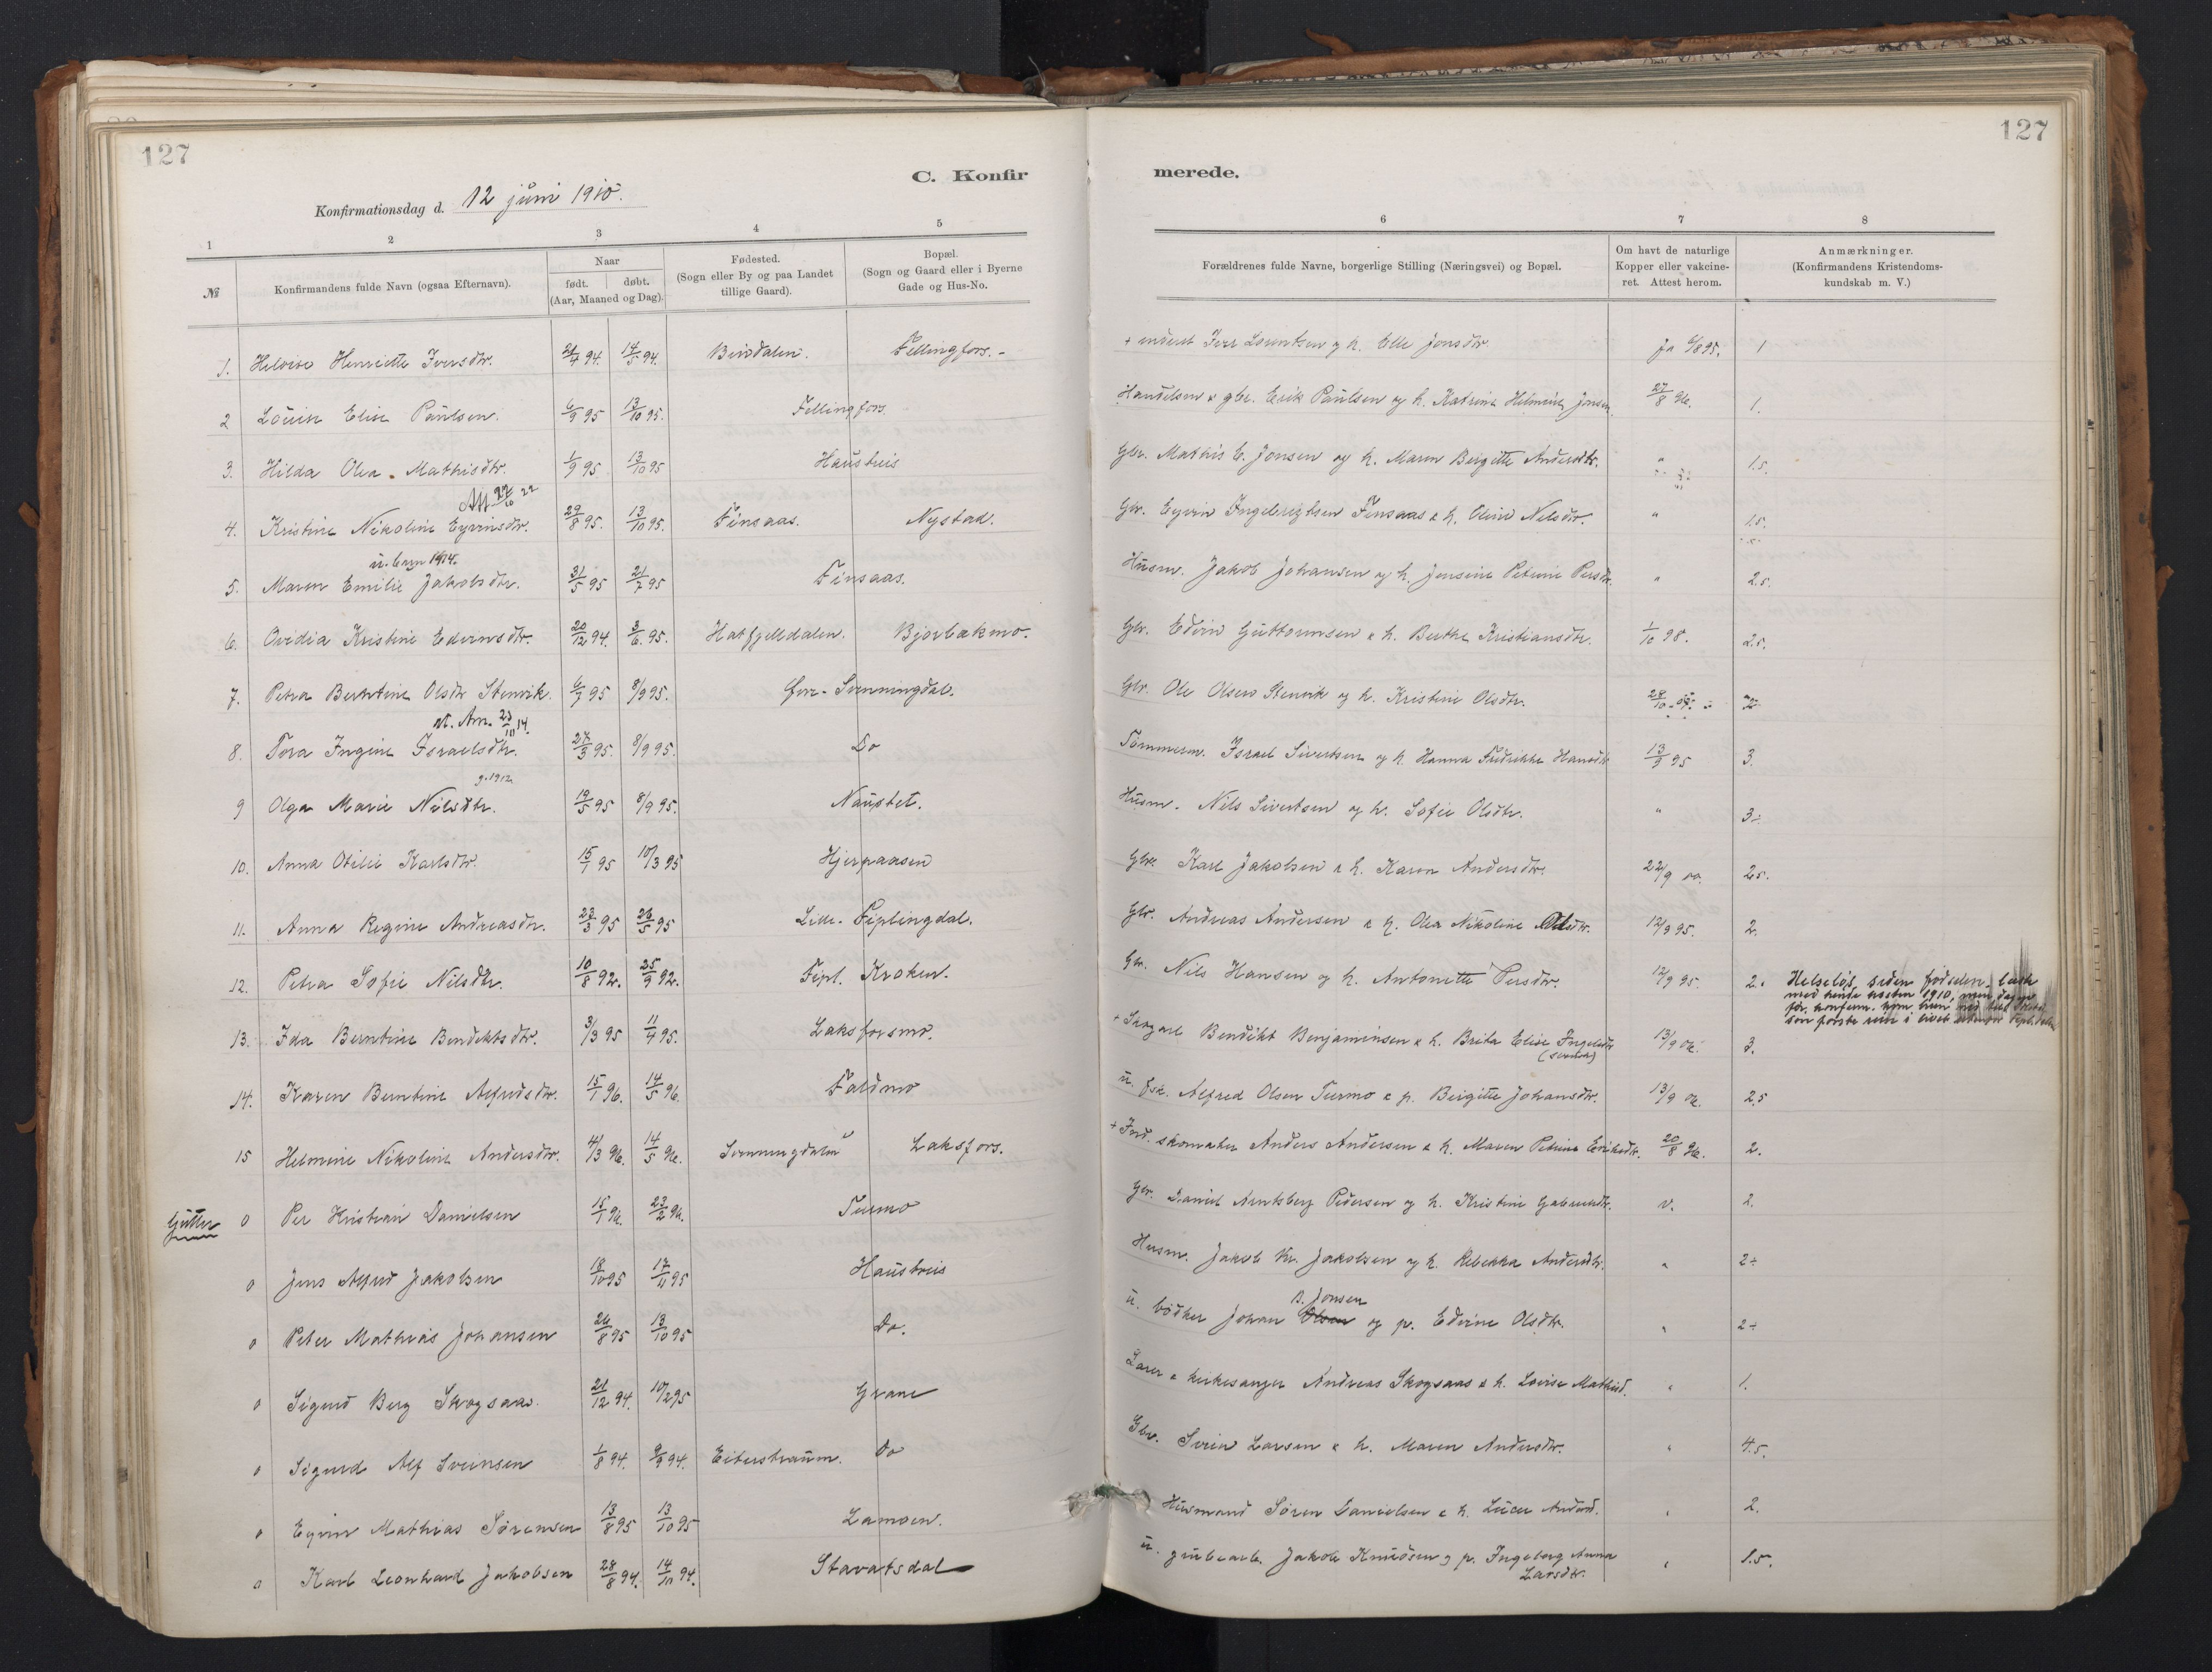 127
127
C. Konfir
merede.
Konfirmationsdag d. 12 juni 1910.
1 2 3 4 5 6 7 8
№
Konfirmandens fulde Navn (ogsaa Efternavn).
Naar
født. døbt.
(Aar, Maaned og Dag).
Fødested.
(Sogn eller By og paa Landet
tillige Gaard).
Bopæl.
(Sogn og Gaard eller i Byerne
Gade og Hus-No.
Forældrenes fulde Navne, borgerlige Stilling (Næringsvei) og Bopæl.
Om havt de naturlige
Kopper eller vakcine-
ret. Attest herom.
Anmærkninger.
(Konfirmandens Kristendoms-
kundskab m. V.)
1. Henriette Iversdtr. 94. 14/5 94. Bindalen. Fellingfors. Iver og h. Elle Jonsdtr. ja 95. 1
2 Lovise Elise Paulsen. 6/9 95 13/10 95. Fellingfors. Handelsm & gbr. Erik Paulsen og h. Katrine Jonsen. 27/8 96. 1.
3. Hilda Olea Mathisdtr. 1/9 95. 13/10 95 Haustreis Gbr. Mathis E. Jonsen og h. Maren Bergitte Andersdtr. " 1.5.
Att. 22
4. Kristine Nikoline Eyvinsdtr. 29/8 95. 13/10 95. Finsaas. Nystad. Gbr. Eyvin Ingebrigtsen Finsaas & h. Oline Nilsdtr. " 1.5.
5. Maren Emilie Jakobsdtr. 31/5 95 21/7 95 Finsaas. Husm. Jakob Johansen og h. Jensine Petrine Persdtr. " 2.5.
6. Ovidia Kristine Edvinsdtr. 20/12 94. 3/6 95. Hatfjelldalen. Bjorbækmo. Gbr. Edvin Guttormsen & h. Berthe Kristiansdtr. 1/10 98. 2.5.
7. Petra Berntine Olsdtr Stenvik. 6/7 95 8/9 95. Svenningdal. Gbr. Ole Olsen Stenvik og h. Kristine Olsdtr. 28/10 2
att. Am. 23/10 14.
8. Tora Ingine Israelsdtr. 27/3 95. 8/9 95. Do Tømmerm. Israel Sivertsen og h. Hanna Fredrikke Hansdtr 13/9 95 3.
g. 1912
9 Olga Marie Nilsdtr. 19/5 95 8/9 95. Naustet. Husm. Nils Sivertsen og h. Sofie Olsdtr. " 3÷
10. Anna Otilie Karlsdtr. 15/1 95 10/3 95 Hjerpaasen Gbr. Karl Jakobsen & h. Karen Andersdtr. 22/9 2.5.
11. Anna Regine Andreasdtr. 23/3 95 26/5 95 Lille-Fiplingdal. Gbr. Andreas Andersen & h. Olea Nikoline Olsdtr. 12/9 95. 2.
12. Petra Sofie Nilsdtr. 10/8 92. 25/9 92. Fipl. Kroken. Gbr. Nils Hansen og h. Antonette Persdtr. 12/9 95. 2. Helseløs siden fødselen, læste
med hende høsten 1910, men dagen
før konfirm. kom hun
som første rein i livet utenfor Fipl.dalen
13. Ida Berntine Bendiktsdtr. 3/3 95 11/4 95. Laksforsmo. + Skogarb Bendikt Benjaminsen & h. Brita Elise Ingelsdtr (svensk) 13/9 3.
14. Karen Berntine Alfredsdtr. 15/1 96. 14/5 96. Faldmo u. fsk. Alfred Olsen Turmo & p. Birgitte Johansdtr. 13/9 2.5
15 Helmine Nikoline Andersdtr. 4/3 96. 14/5 96. Svenningdalen Laksfors. + Ind. skomaker Anders Andersen & h. Maren Petrine Eriksdtr. 20/8 96. 2.
Gutter
0 Per Kristian Danielsen 15/1 96. 23/2 96. Turmo Gbr. Daniel Arntsberg Pedersen og h. Kristine Gabrielsdtr. v. 2.
0 Jens Alfred Jakobsen 18/10 95 17/11 95 Haustreis Husm. Jakob Kr. Jakobsen og h. Rebekka Andersdtr. " 2÷
B. Jonsen
0 Peter Mathias Johansen 26/8 95 13/10 95 Do. u. bødker Johan Olsen og p. Edvine Olsdtr. " 2÷
0 Sigurd Berg Skogsaas. 21/12 94. 10/2 95 Grane Lærer & kirkesanger Andreas Skogsaas & h. Lovise Mathisd. " 1.
0 Sigurd Alf Sveinsen 1/8 94. 9/9 94. Eiterstraum. Do Gbr. Svein Larsen & h. Maren Andersdtr. " 4.5.
0 Eyvin Mathias Sørensen 13/8 95 13/10 95 Lamoen. Husmand Søren Danielsen & h. Lucie Andersd. " 2.
0 Karl Leonhard Jakobsen 28/8 94. 14/10 94. Stavatsdal u. grubearb. Jakob Knudsen og p. Ingeborg Anna Larsdtr. " 1.5.